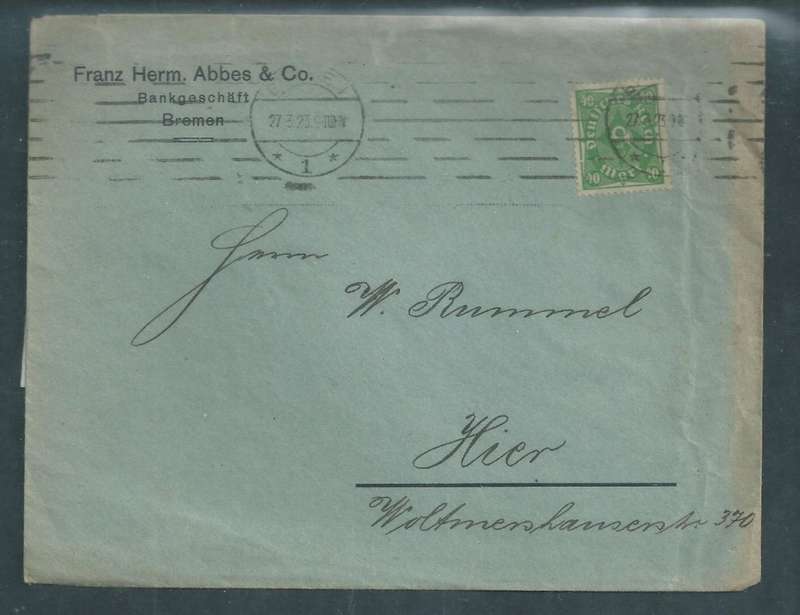 Franz Herm. Abbes & Co.
Bankgeschäft
Bremen
27.3.23.9-10 N
* 1 *
40 40
40 40
27.3.23
Herrn
W. Rummel
Hier
Woltmershauserstr. 370